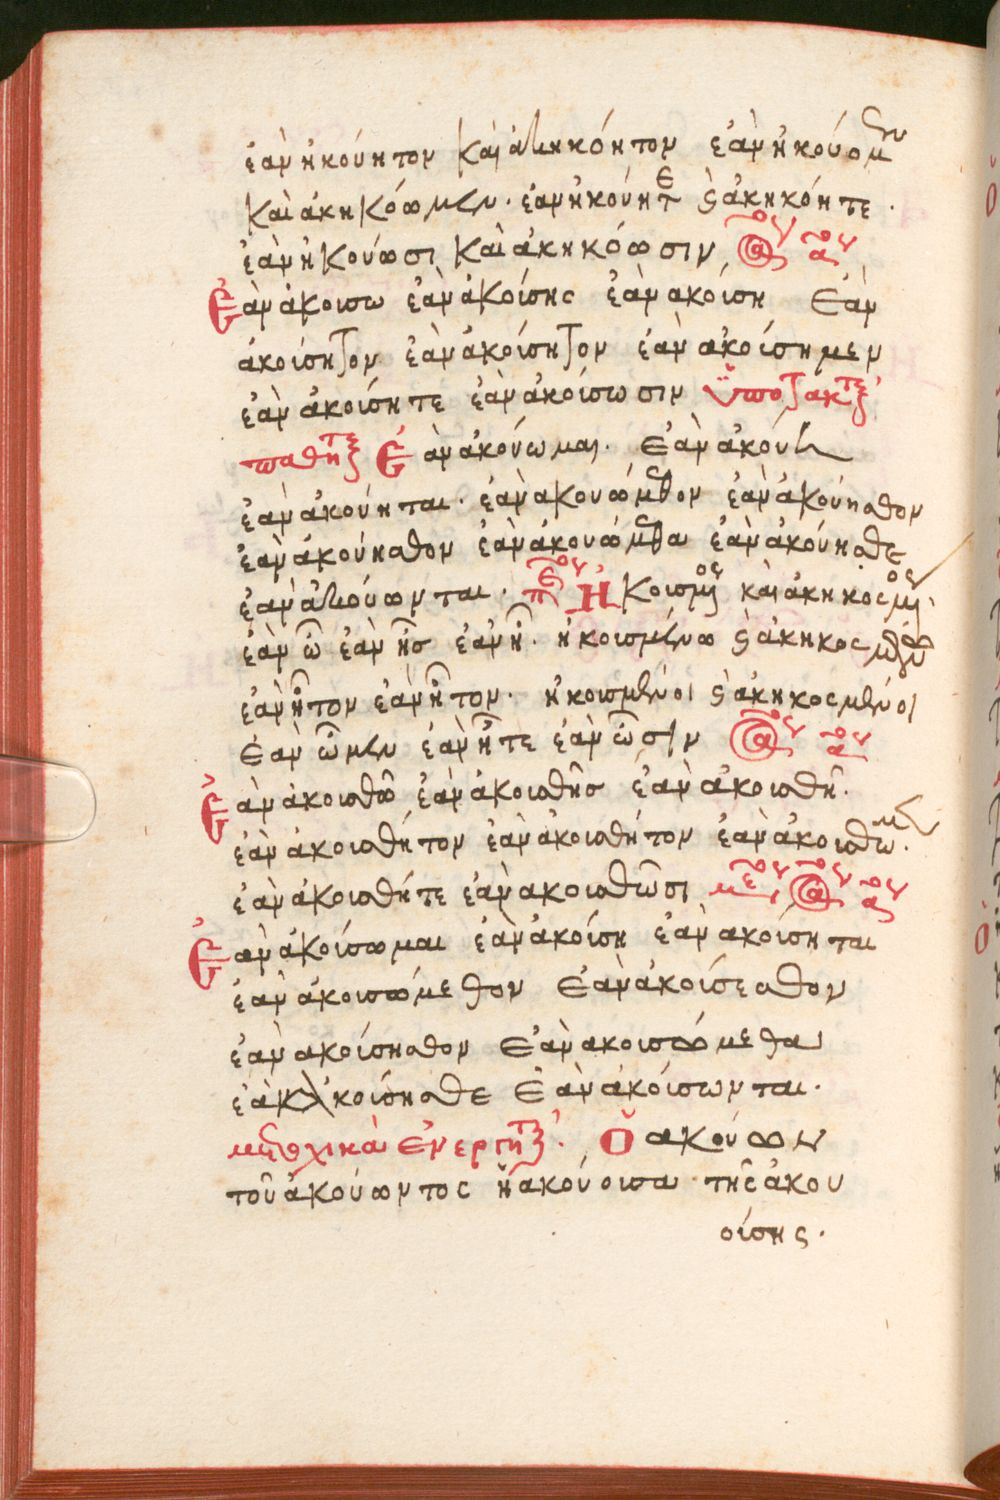 ἐὰν ἠκούητον καὶ ἀκηκόητον ἐὰν ἠκούομεν
καὶ ἀκηκόωμεν. ἐὰν ἠκούητε ϗ ἀκηκόητε.
ἐὰν ἠκούωσι καὶ ἀκηκόωσιν
Ἐὰν ἀκοισω ἐὰν ἀκοίσης ἐὰν ακοίση Ἐὰν
ἀκοίσητον ἐὰν ἀκοίσητον ἐὰν ακοίσημεν
ἐὰν ἀκοισήτε ἐὰν ἀκοίσωσιν ὑποτακτ
παθητ Ἐὰν ἀκούωμαι. Ἐὰν ἀκούη
ἐὰν ἀκούηται. ἐὰν ακουώμεθον ἐὰν ἀκούησθον
ἐὰν ἀκούησθον ἐὰν ἀκουώμεθα ἐὰν ἀκούησθε
ἐὰν ἀκούωνται. Ἠκοισμένος καὶ ἀκηκοεμένος
ἐὰν ὦ ἐὰν ἦς ἐὰν ἦ. ἠκοισμένω ϗ ἀκηκοεμένω
ἐὰν ἦτον ἐὰν ἦτον. ἠκοισμένοι ϗ ἀκηκοεμένοι
ἐὰν ὦμεν ἐὰν ἦτε ἐὰν ὦσιν
Ἐὰν ἀκοισθῶ ἐὰν ἀκοισθῆς ἐὰν ἀκοισθῆ.
ἐὰν ἀκοισθήτον ἐὰν ἀκοισθήτον ἐὰν ἀκοισθῶμεν.
ἐὰν ἀκοισθήτε ἐὰν ακοισθῶσι
Ἐὰν ἀκοίσωμαι ἐὰν ἀκοίση ἐὰν ακοίσηται
ἐὰν ἀκοισώμεθον Ἐὰν ἀκοίσεσθον
ἐὰν ακοίσησθον Ἐὰν ακοισώμεθα
ἐὰν ἀκοίσησθε Ἐὰν ἀκοίσωνται.
μετοχικὰ ἐνεργητ. Ὁ ακούων
τοῦ ἀκούωντος ἡ ἀκούοισα τῆς ἀκου
οίσης.